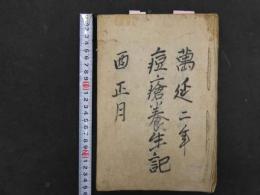 萬延二年
痘瘡養生記
酉正月